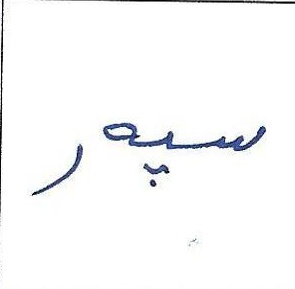 سپهر